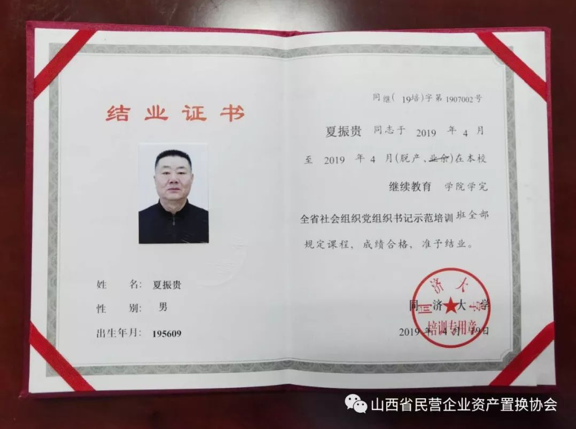 结业证书
姓 名: 夏振贵
性 别: 男
出生年月: 195609
同继( 19培)字第 1907002 号
夏振贵 同志于 2019 年 4 月
至 2019 年 4 月(脱产、业余)在本校
继续教育 学院学完
全省社会组织党组织书记示范培训 班全部
规定课程，成绩合格，准予结业。
同 济 大 学
2019 年 4 月 19日
同济大学
培训专用章
山西省民营企业资产置换协会